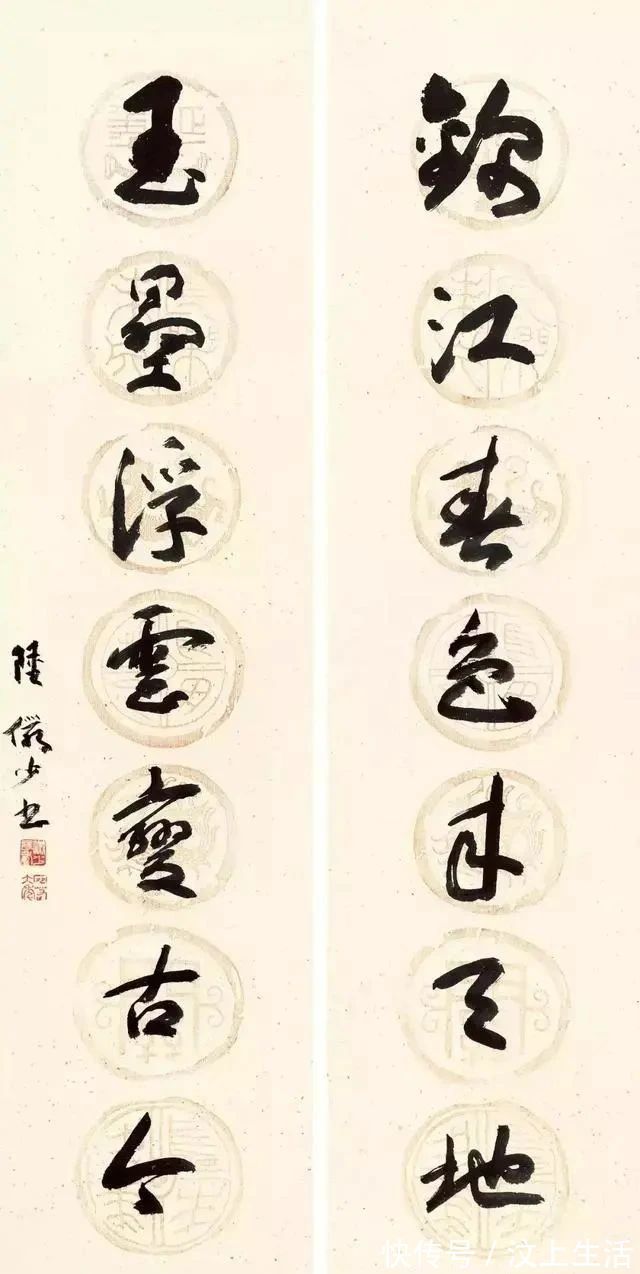 錦江春色来天地
玉壘浮雲變古今
陸儼少书
快传号/汶上生活